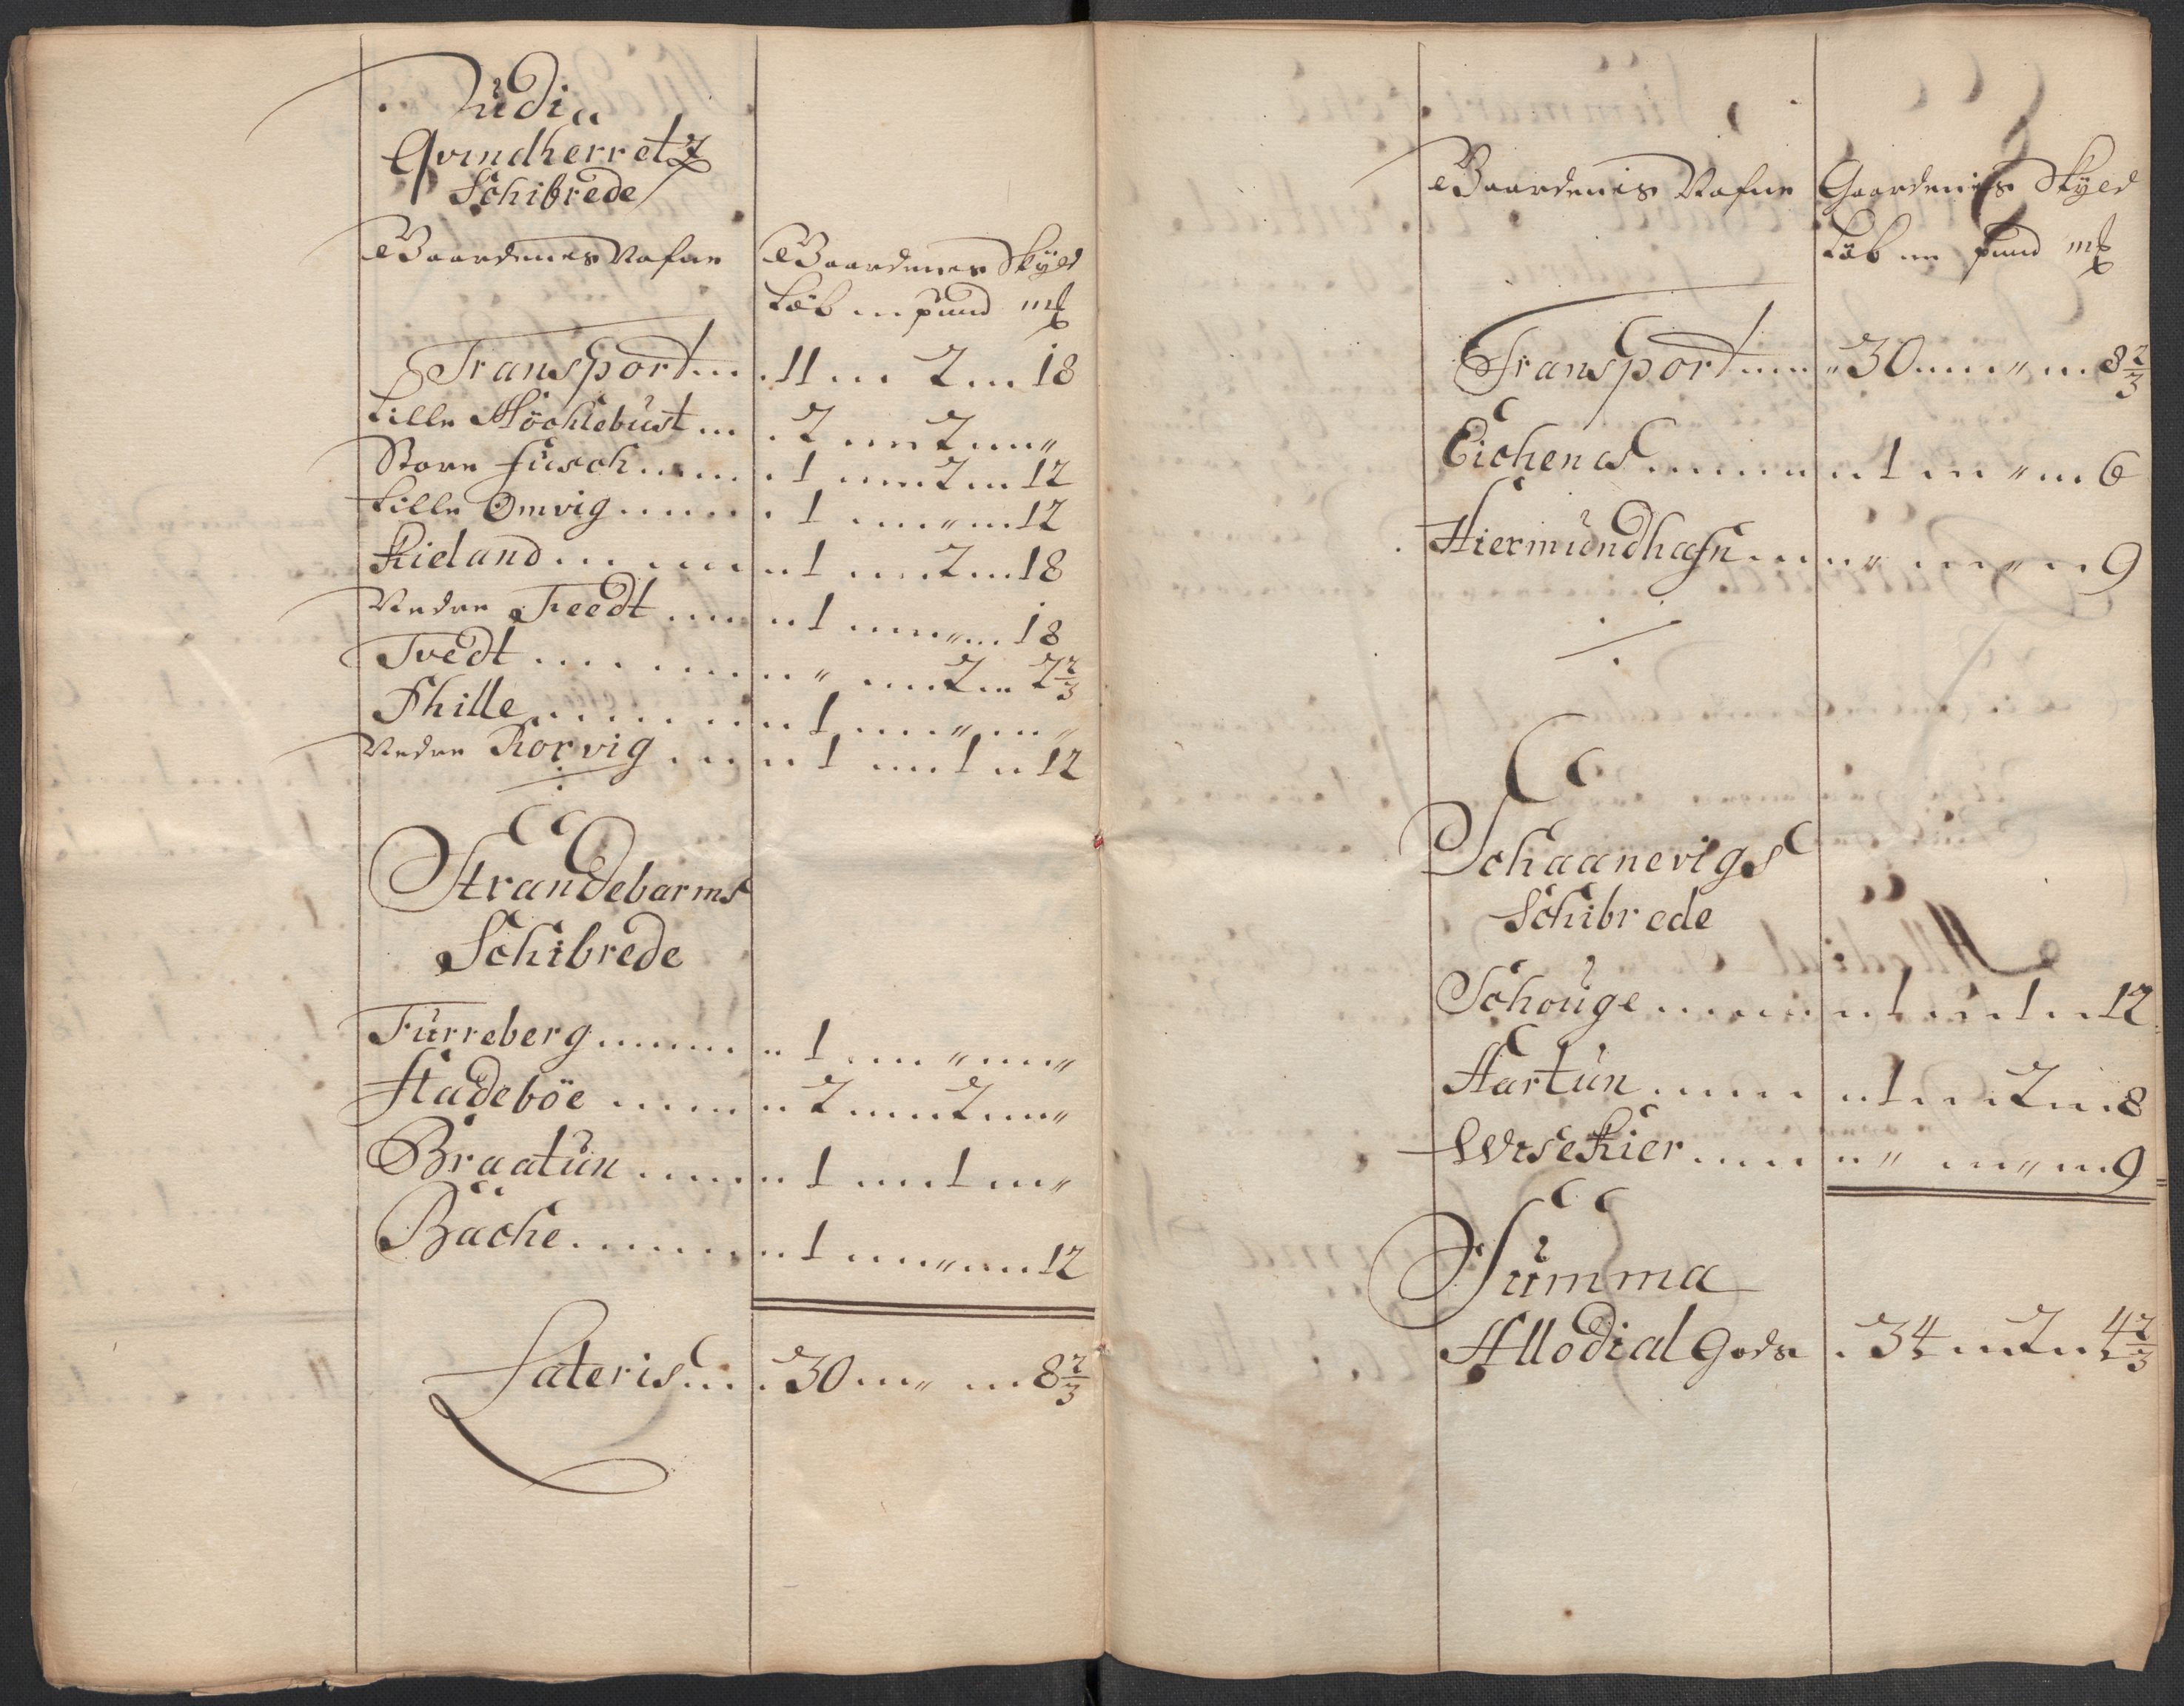 Qvindherretz
Schibrede
Gaardenes Nafne Gaardenes Skyld
Løb .... pund m
Transport... .11 ... 2 ... 18
Lille Möchlebust ... . 2 .... 2 .... "
Store Fusch...... . 1 .... 2 ... 12
Lille Omvig...... . 1 .... " ... 12
Kieland... .... .. 1 .... 2 ... 18
Nedre Treedt .... .. 1 .... " ... 18
Tvedt ........ .. " .... 2 ... 2 2/3
Fhille ........ .. 1 .... " ... "
Nedre Rorvig .... .. 1 .... 1 .. 12
Strandebarms
Schibrede
Furreberg ....... .. 1 .... " .... "
Stadeböe ...... .. 2 .... 2 .... "
Braatun ...... .. 1 .... 1 ... "
Bache ........ .. 1 .... " .... 12
Lateris ... . 30 ... " ... 8 2/3
Gaardenis Nafne Gaardenis Skyld
Løb ... pund m
Transport .... " 30 .... " ... 8 2/3
Eichenes ....... .. 1 ... " ... 6
Hiermundhafn .... .. " ... " .. 9
Schaanevigs
Schibrede
Schouge ....... .. 1 ... 1 .. 12
Hartun ...... .. 1 ... 2 ... 8
Wisekier ..... .. " ... " ... 9
Summa
Allodial Gods . 34 ... 2 .. 4 2/3